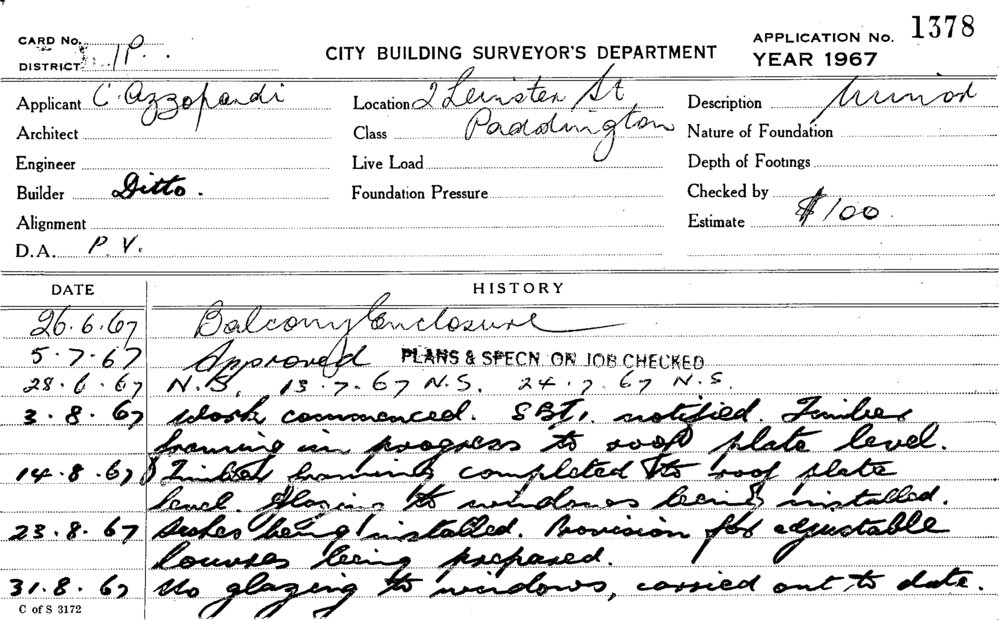 CARD No. 1378
DISTRICT P. CITY BUILDING SURVEYOR'S DEPARTMENT APPLICATION No.
YEAR 1967
Applicant C. Azzopardi Location 2 Leinster St, Description Minor
Architect Class Paddington Nature of Foundation
Engineer Live Load Depth of Footings
Builder Ditto. Foundation Pressure Checked by
Alignment Estimate $100
D.A. P.V.
DATE HISTORY
26.6.67 Balcony Enclosure
5.7.67 Approved PLANS & SPECN. ON JOB CHECKED
28.6.67 N.S. 13.7.67 N.S. 24.7.67 N.S.
3.8.67 Work commenced. notified. Timber
framing in progress to roof plate level.
14.8.67 Timber framing completed to roof plate
level. Glazing to windows being installed.
23.8.67 Sashes being installed. Provision for adjustable
louvres being prepared.
31.8.67 No glazing to windows, carried out to date.
C of S 3172